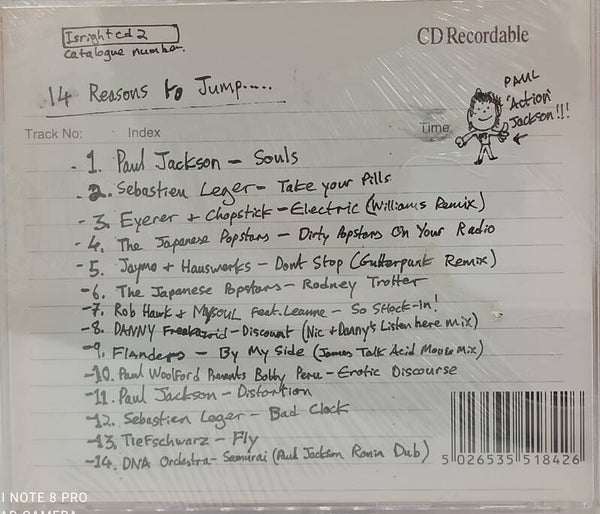 Isrightcd2
catalogue number.
CD Recordable
14 Reasons to Jump.....
PAUL
'Action'
Jackson!!!
Track No: Index Time:
- 1. Paul Jackson - Souls
- 2. Sebastien Leger - Take your Pills
- 3. Eyerer + Chopstick - Electric (Williams Remix)
- 4. The Japanese Popstars - Dirty Popstars On Your Radio
- 5. Jaymo + Hauswerks - Dont Stop (Gutterpunk Remix)
- 6. The Japanese Popstars - Rodney Trotter
- 7. Rob Hawk + Mysoul Feat. Leanne - So Shock-In!
- 8. DANNY Freakazoid - Discount (Nic + Danny's Listen here mix)
- 9. Flanders - By My Side (James Talk Acid Mouse Mix)
- 10. Paul Woolford Presents Bobby Peru - Erotic Discourse
- 11. Paul Jackson - Distortion
- 12. Sebastien Leger - Bad Clock
- 13. Tiefschwarz - Fly
- 14. DNA Orchestra - Samurai (Paul Jackson Ronin Dub)
5 026535 518426
I NOTE 8 PRO
AD CAMERA